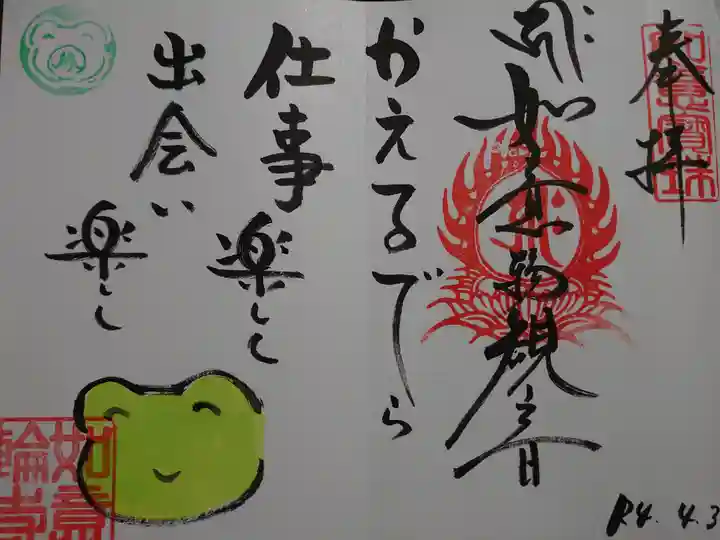 奉拝
如意寶珠
如意輪観音
かえるでら
仕事
楽しく
出会い
楽し
如意輪寺
R4. 4.3